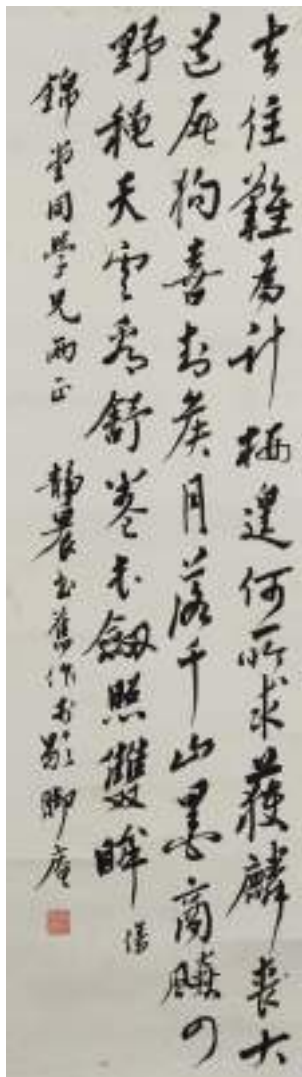 去住難為計栖遑何所求獲麟喪大
道屠狗喜封侯月落千山墨商飇四
野穐天雲看舒卷長劔照雙眸
錦堂同學兄兩正 靜農書舊作於歇脚庵